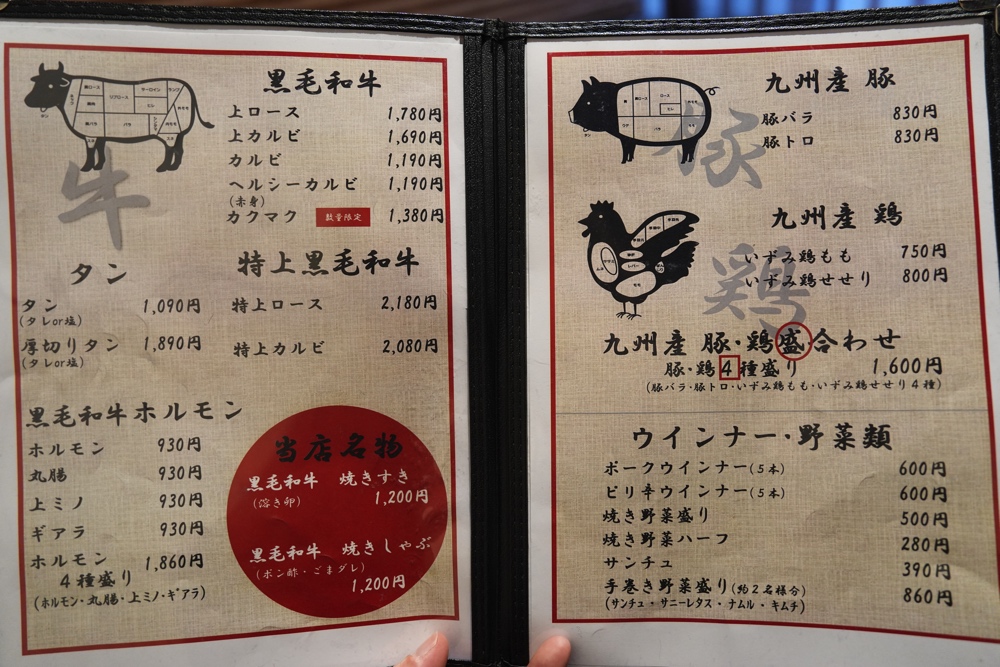 黒毛和牛
上ロース 1,780円
上カルビ 1,690円
カルビ 1,190円
ヘルシーカルビ 1,190円
(赤身)
カクマク 数量限定 1,380円
牛
タン
タン 1,090円
(タレor塩)
厚切りタン 1,890円
(タレor塩)
特上黒毛和牛
特上ロース 2,180円
特上カルビ 2,080円
黒毛和牛ホルモン
ホルモン 930円
丸腸 930円
上ミノ 930円
ギアラ 930円
ホルモン 1,860円
4種盛り
(ホルモン・丸腸・上ミノ・ギアラ)
当店名物
黒毛和牛 焼きすき
(溶き卵) 1,200円
黒毛和牛 焼きしゃぶ
(ポン酢・ごまダレ)
1,200円
九州産 豚
豚
豚バラ 830円
豚トロ 830円
九州産 鶏
鶏
いずみ鶏もも 750円
いずみ鶏せせり 800円
九州産 豚・鶏盛合わせ
豚・鶏4種盛り 1,600円
(豚バラ・豚トロ・いずみ鶏もも・いずみ鶏せせり4種)
ウインナー・野菜類
ポークウインナー(5本) 600円
ピリ辛ウインナー(5本) 600円
焼き野菜盛り 500円
焼き野菜ハーフ 280円
サンチュ 390円
手巻き野菜盛り(約2名様分) 860円
(サンチュ・サニーレタス・ナムル・キムチ)